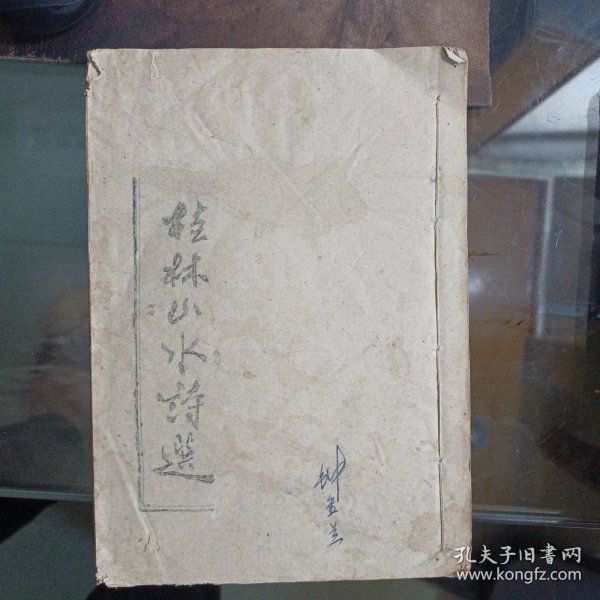 桂林山水詩選
孔夫子旧书网
www.kongfz.com